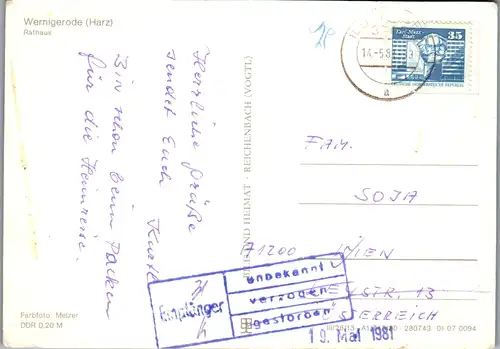 Wernigerode (Harz)
Rathaus
Herrliche Grüße
sendet Euch Kurtl
Bin schon beim Packen
für die Heimreise.
Farbfoto: Melzer
DDR 0,20 M
BILD UND HEIMAT · REICHENBACH (VOGTL)
14.-5.8
a
35
Karl-Marx-
Stadt
DEUTSCHE DEMOKRATISCHE REPUBLIK
FAM.
SOJA
A1200 WIEN
STR. 13
ÖSTERREICH
Empfänger
unbekannt
verzogen
gestorben
19. Mai 1981
280743 01 07 0094